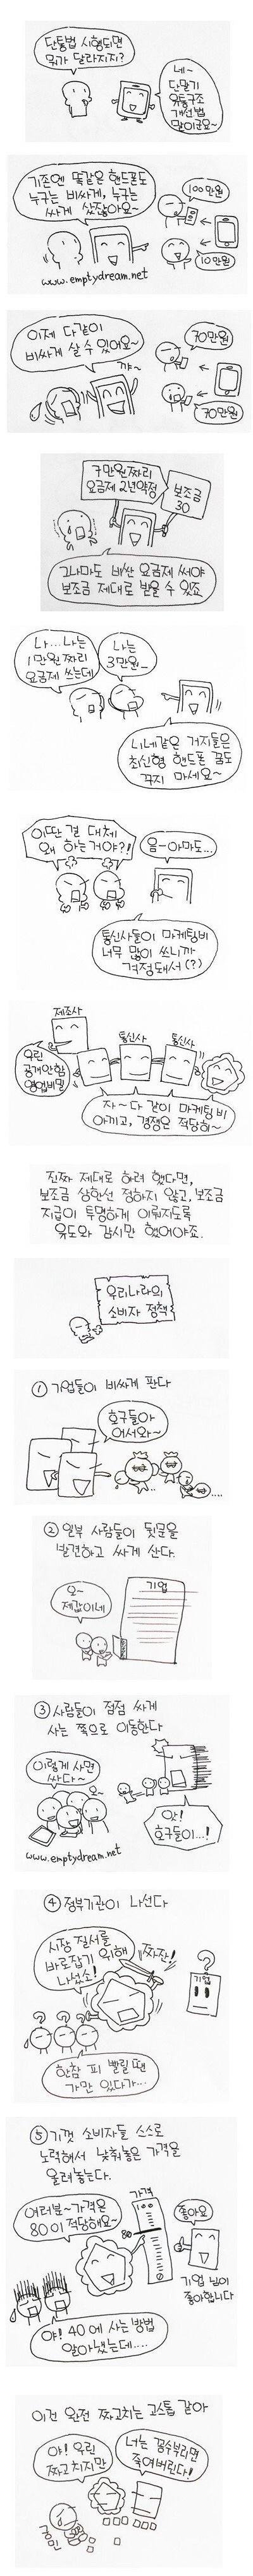 단통법 시행되면
뭐가 달라지지?
네~
단말기
유통구조
개선법
말이군요~
기존엔 똑같은 핸드폰도
누구는 비싸게, 누구는
싸게 샀잖아요~
100만원
10만원
www.emptydream.net
이제 다같이
비싸게 살 수 있어요~
꺄~
70만원
70만원
7만원짜리
요금제 2년약정
보조금
30
그나마도 비싼 요금제 써야
보조금 제대로 받을 수 있죠
나...나는
1만원 짜리
요금제 쓰는데
나는
3만원_
니네같은 거지들은
최신형 핸드폰 꿈도
꾸지 마세요~
이딴 걸 대체
왜 하는거야?!
음-아마도...
통신사들이 마케팅비
너무 많이 쓰니까
걱정돼서(?)
제조사
통신사
통신사
우린
공개안함
영업비밀
자~다 같이 마케팅비
아끼고, 경쟁은 적당히~
진짜 제대로 하려 했다면,
보조금 상한선 정하지 않고, 보조금
지급이 투명하게 이뤄지도록
유도와 감시만 했어야죠.
우리나라의
소비자 정책
① 기업들이 비싸게 판다
호구들아
어서와~
② 일부 사람들이 뒷문을
발견하고 싸게 산다.
오~
제값이네
기업
③ 사람들이 점점 싸게
사는 쪽으로 이동한다
이렇게 사면
싸다~
오~
앗!
호구들이...!
www.emptydream.net
④ 정부기관이 나선다
시장 질서를
바로잡기 위해
나섰소!
짜잔!
기업
한참 피 빨릴 땐
가만 있다가...
⑤ 기껏 소비자들 스스로
노력해서 낮춰놓은 가격을
올려놓는다.
여러분~가격은
80이 적당해요~
가격
100
80
0
좋아요
기업님이
좋아합니다
야! 40에 사는 방법
알아냈는데....
이건 완전 짜고치는 고스톱 같아
아! 우린
짜고 치지만
너는 꼼수부리면
죽여버린다!
국민